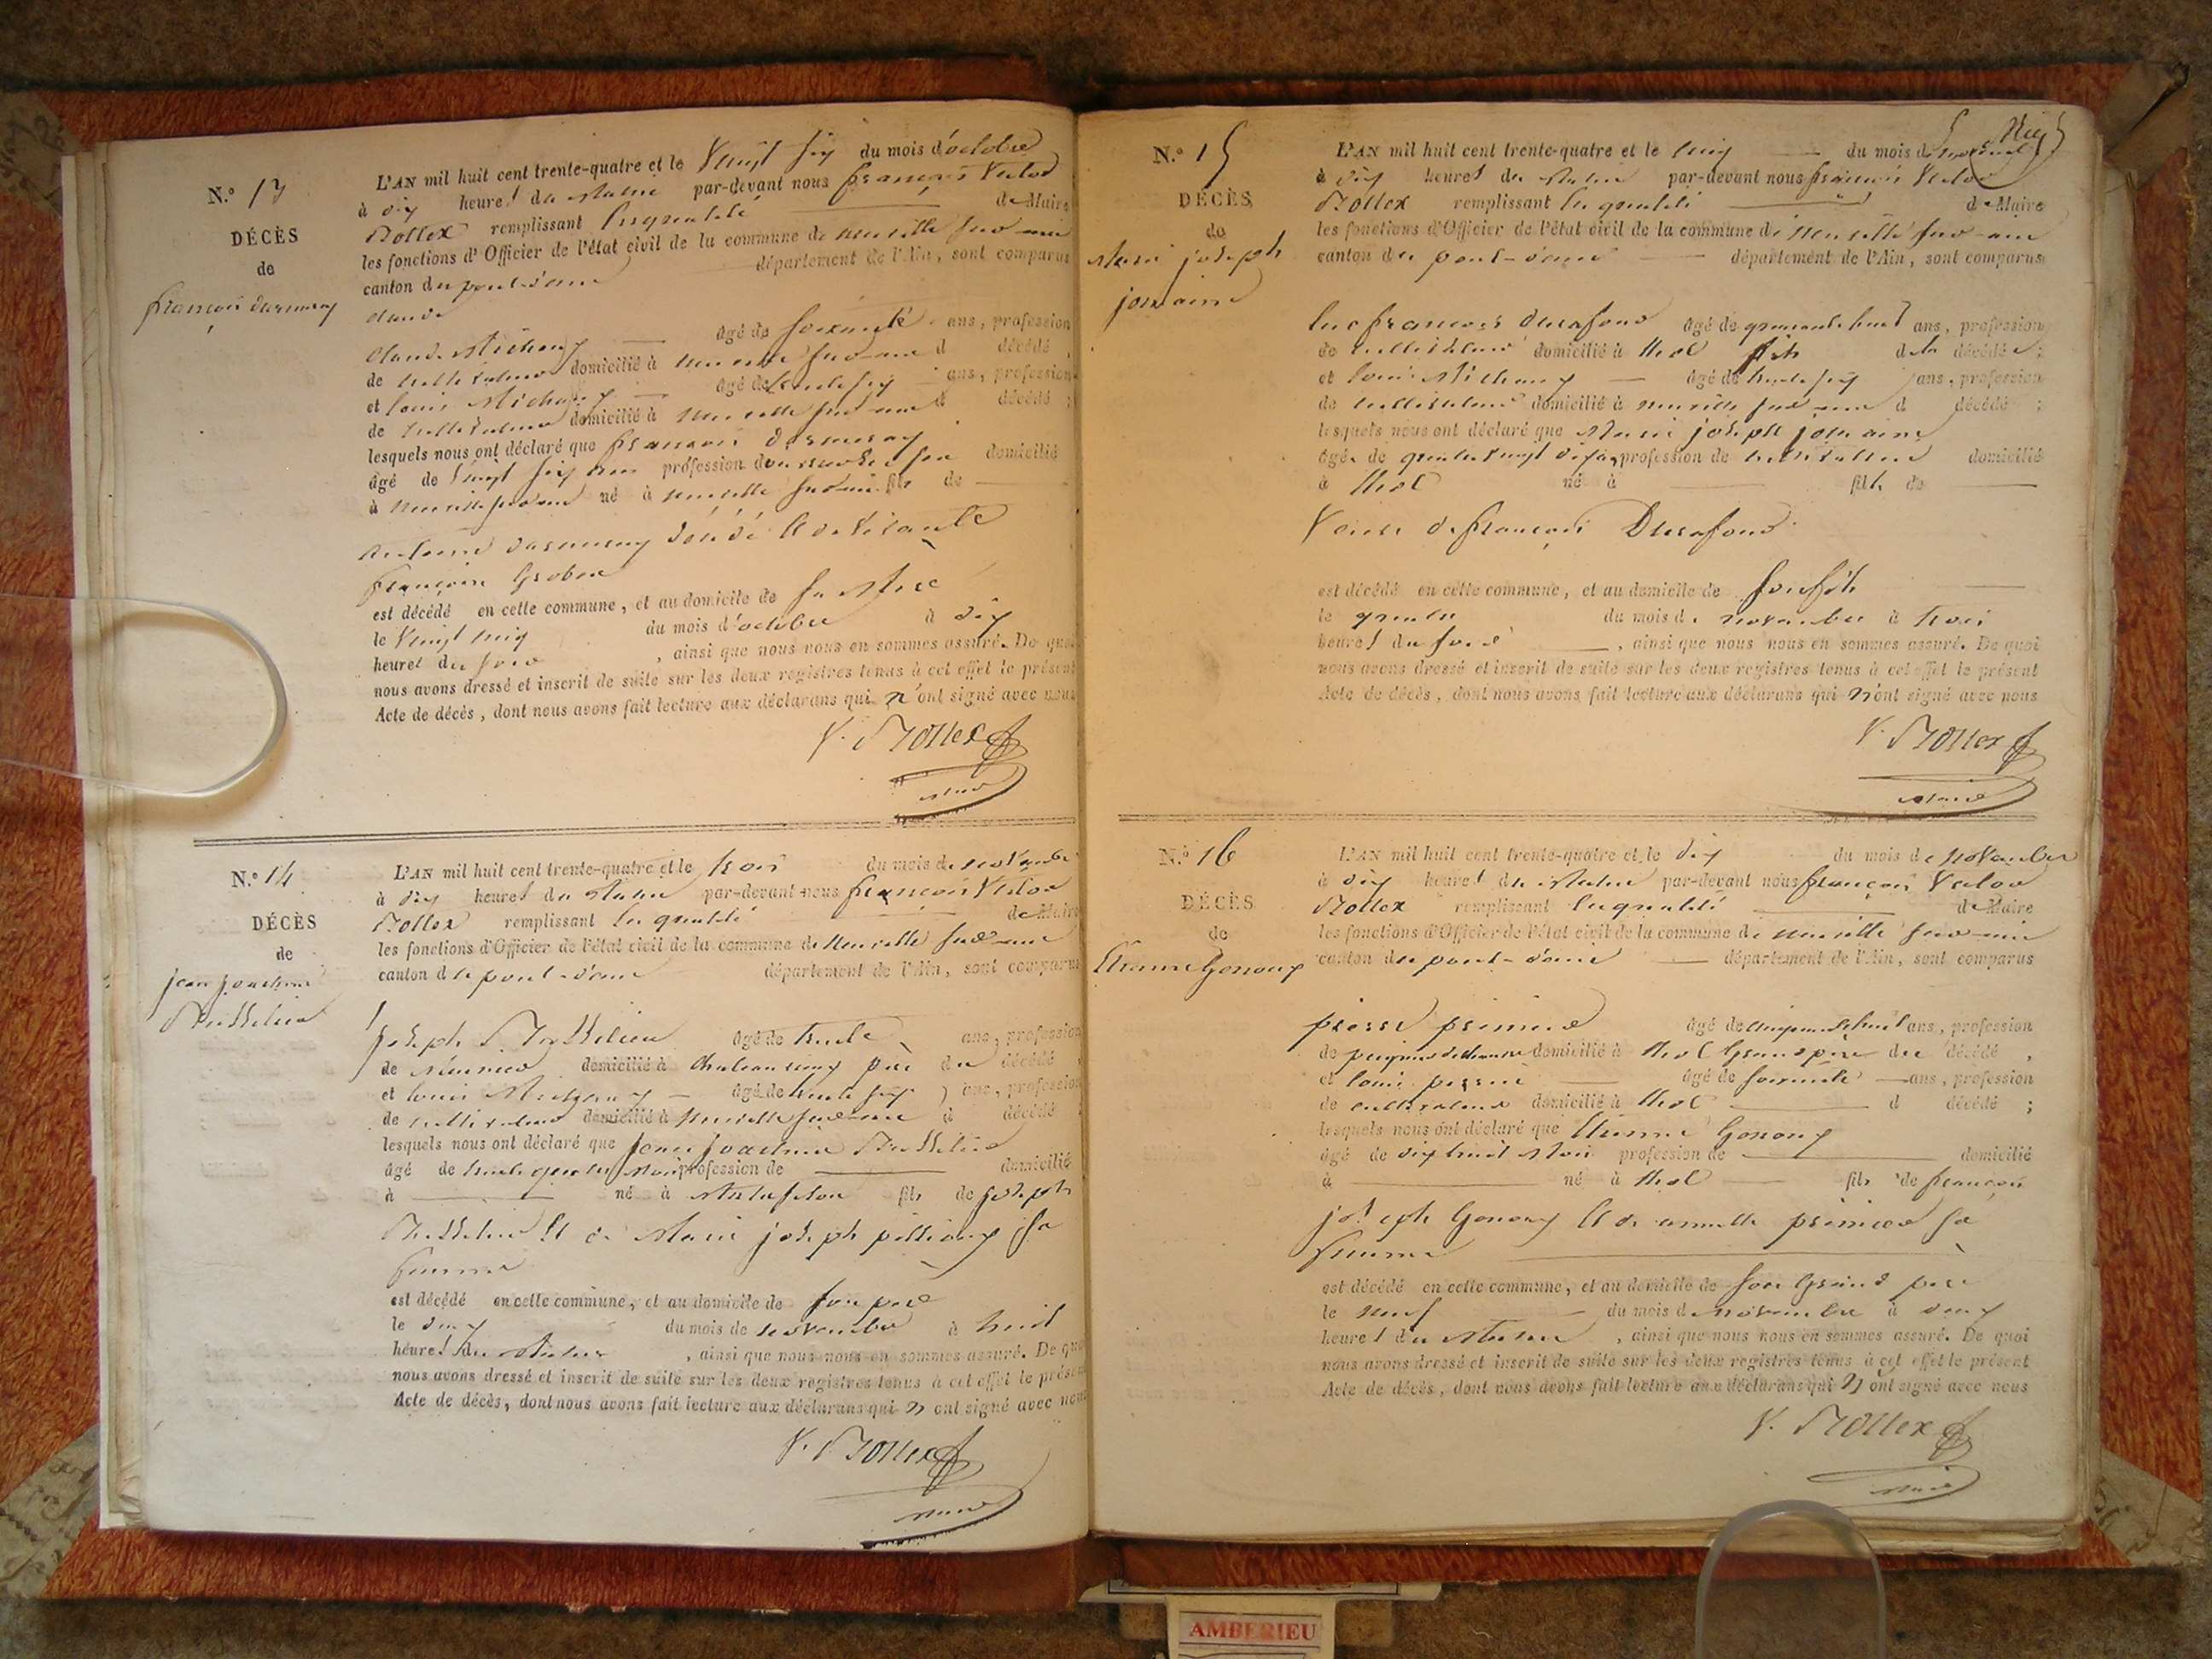 N.º 13
DÉCÈS
de
françois darmeray
L'AN mil huit cent trente-quatre et le Vingt six du mois d'octobre
à dix heures du matin par-devant nous françois Victor
Bollex remplissant les qualité de Maire
les fonctions d'Officier de l'état civil de la commune de neuville sur ain
canton du pont-d'ain département de l'Ain, sont comparus
claude
Claude Michaux âgé de soixante ans, profession
de cultivateur domicilié à neuville sur ain d décédé,
et louis Michaux âgé de trente six ans, profession
de cultivateur domicilié à neuville sur ain d décédé;
lesquels nous ont déclaré que françois
âgé de Vingt six ans profession domicilié
à neuville sur ain né à neuville sur ain fils de
antoine décédé et de Vivante
françoise
est décédé en cette commune, et au domicile de sa Mere
le Vingt cinq du mois d'octobre à dix
heures du soir, ainsi que nous nous en sommes assuré. De quoi
nous avons dressé et inscrit de suite sur les deux registres tenus à cet effet le présent
Acte de décès, dont nous avons fait lecture aux déclarans qui n'ont signé avec nous
V. Bollex
maire
N.º 14
DÉCÈS
de
jean joachim
L'AN mil huit cent trente-quatre et le trois du mois de novembre
à dix heures du matin par-devant nous françois Victor
Bollex remplissant les qualité de Maire
les fonctions d'Officier de l'état civil de la commune de Neuville sur ain
canton du pont-d'ain département de l'Ain, sont comparus
joseph âgé de trente ans, profession
de domicilié à père du décédé
et louis Michaux âgé de trente six ans, profession
de cultivateur domicilié à Neuville sur ain d décédé
lesquels nous ont déclaré que jean joachim
âgé de mois profession de domicilié
à né à fils de joseph
et de Marie joseph sa
femme
est décédé en cette commune, et au domicile de son pere
le deux du mois de novembre à huit
heures du matin, ainsi que nous nous en sommes assuré. De quoi
nous avons dressé et inscrit de suite sur les deux registres tenus à cet effet le présent
Acte de décès, dont nous avons fait lecture aux déclarans qui n ont signé avec nous
V. Bollex
maire
N.º 15
DÉCÈS
de
Marie joseph
jomain
L'AN mil huit cent trente-quatre et le cinq du mois de novembre
à dix heures du matin par-devant nous françois Victor
Bollex remplissant les qualité de Maire
les fonctions d'Officier de l'état civil de la commune de Neuville sur ain
canton du pont-d'ain département de l'Ain, sont comparus
luc françois Durafour âgé de quarante huit ans, profession
de cultivateur domicilié à thol fils de la décédée;
et louis Michaux âgé de trente six ans, profession
de cultivateur domicilié à neuville sur ain d décédé;
lesquels nous ont déclaré que Marie joseph jomain
âgée de quatre vingt dix ans profession de cultivateur domicilié
à thol né à fille de
Veuve de françois Durafour
est décédé en cette commune, et au domicile de son fils
le quatre du mois de novembre à trois
heures du soir, ainsi que nous nous en sommes assuré. De quoi
nous avons dressé et inscrit de suite sur les deux registres tenus à cet effet le présent
Acte de décès, dont nous avons fait lecture aux déclarans qui n'ont signé avec nous
V. Bollex
maire
N.º 16
DÉCÈS
de
Etienne Gonoux
L'AN mil huit cent trente-quatre et le dix du mois de novembre
à dix heures du matin par-devant nous françois Victor
Bollex remplissant les qualité de Maire
les fonctions d'Officier de l'état civil de la commune de neuville sur ain
canton du pont-d'ain département de l'Ain, sont comparus
pierre âgé de cinquante huit ans, profession
de peigneur de chanvre domicilié à thol Grand père du décédé,
et louis âgé de soixante ans, profession
de cultivateur domicilié à thol d décédé;
lesquels nous ont déclaré que Etienne Gonoux
âgé de dix huit mois profession de domicilié
à né à thol fils de françois
joseph Gonoux et de sa
femme
est décédé en cette commune, et au domicile de son Grand pere
le neuf du mois de novembre à onze
heures du matin, ainsi que nous nous en sommes assuré. De quoi
nous avons dressé et inscrit de suite sur les deux registres tenus à cet effet le présent
Acte de décès, dont nous avons fait lecture aux déclarans qui n ont signé avec nous
V. Bollex
maire
AMBERIEU